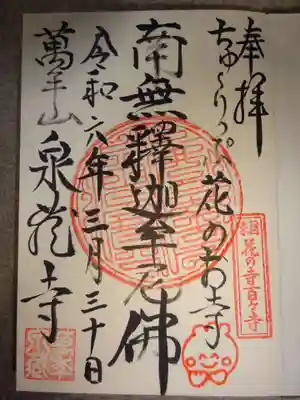 奉拝
ちゅーりっぷ 花のお寺
南無釋迦牟尼佛
令和六年三月三十日
山 泉 寺
東国花の寺百ヶ寺